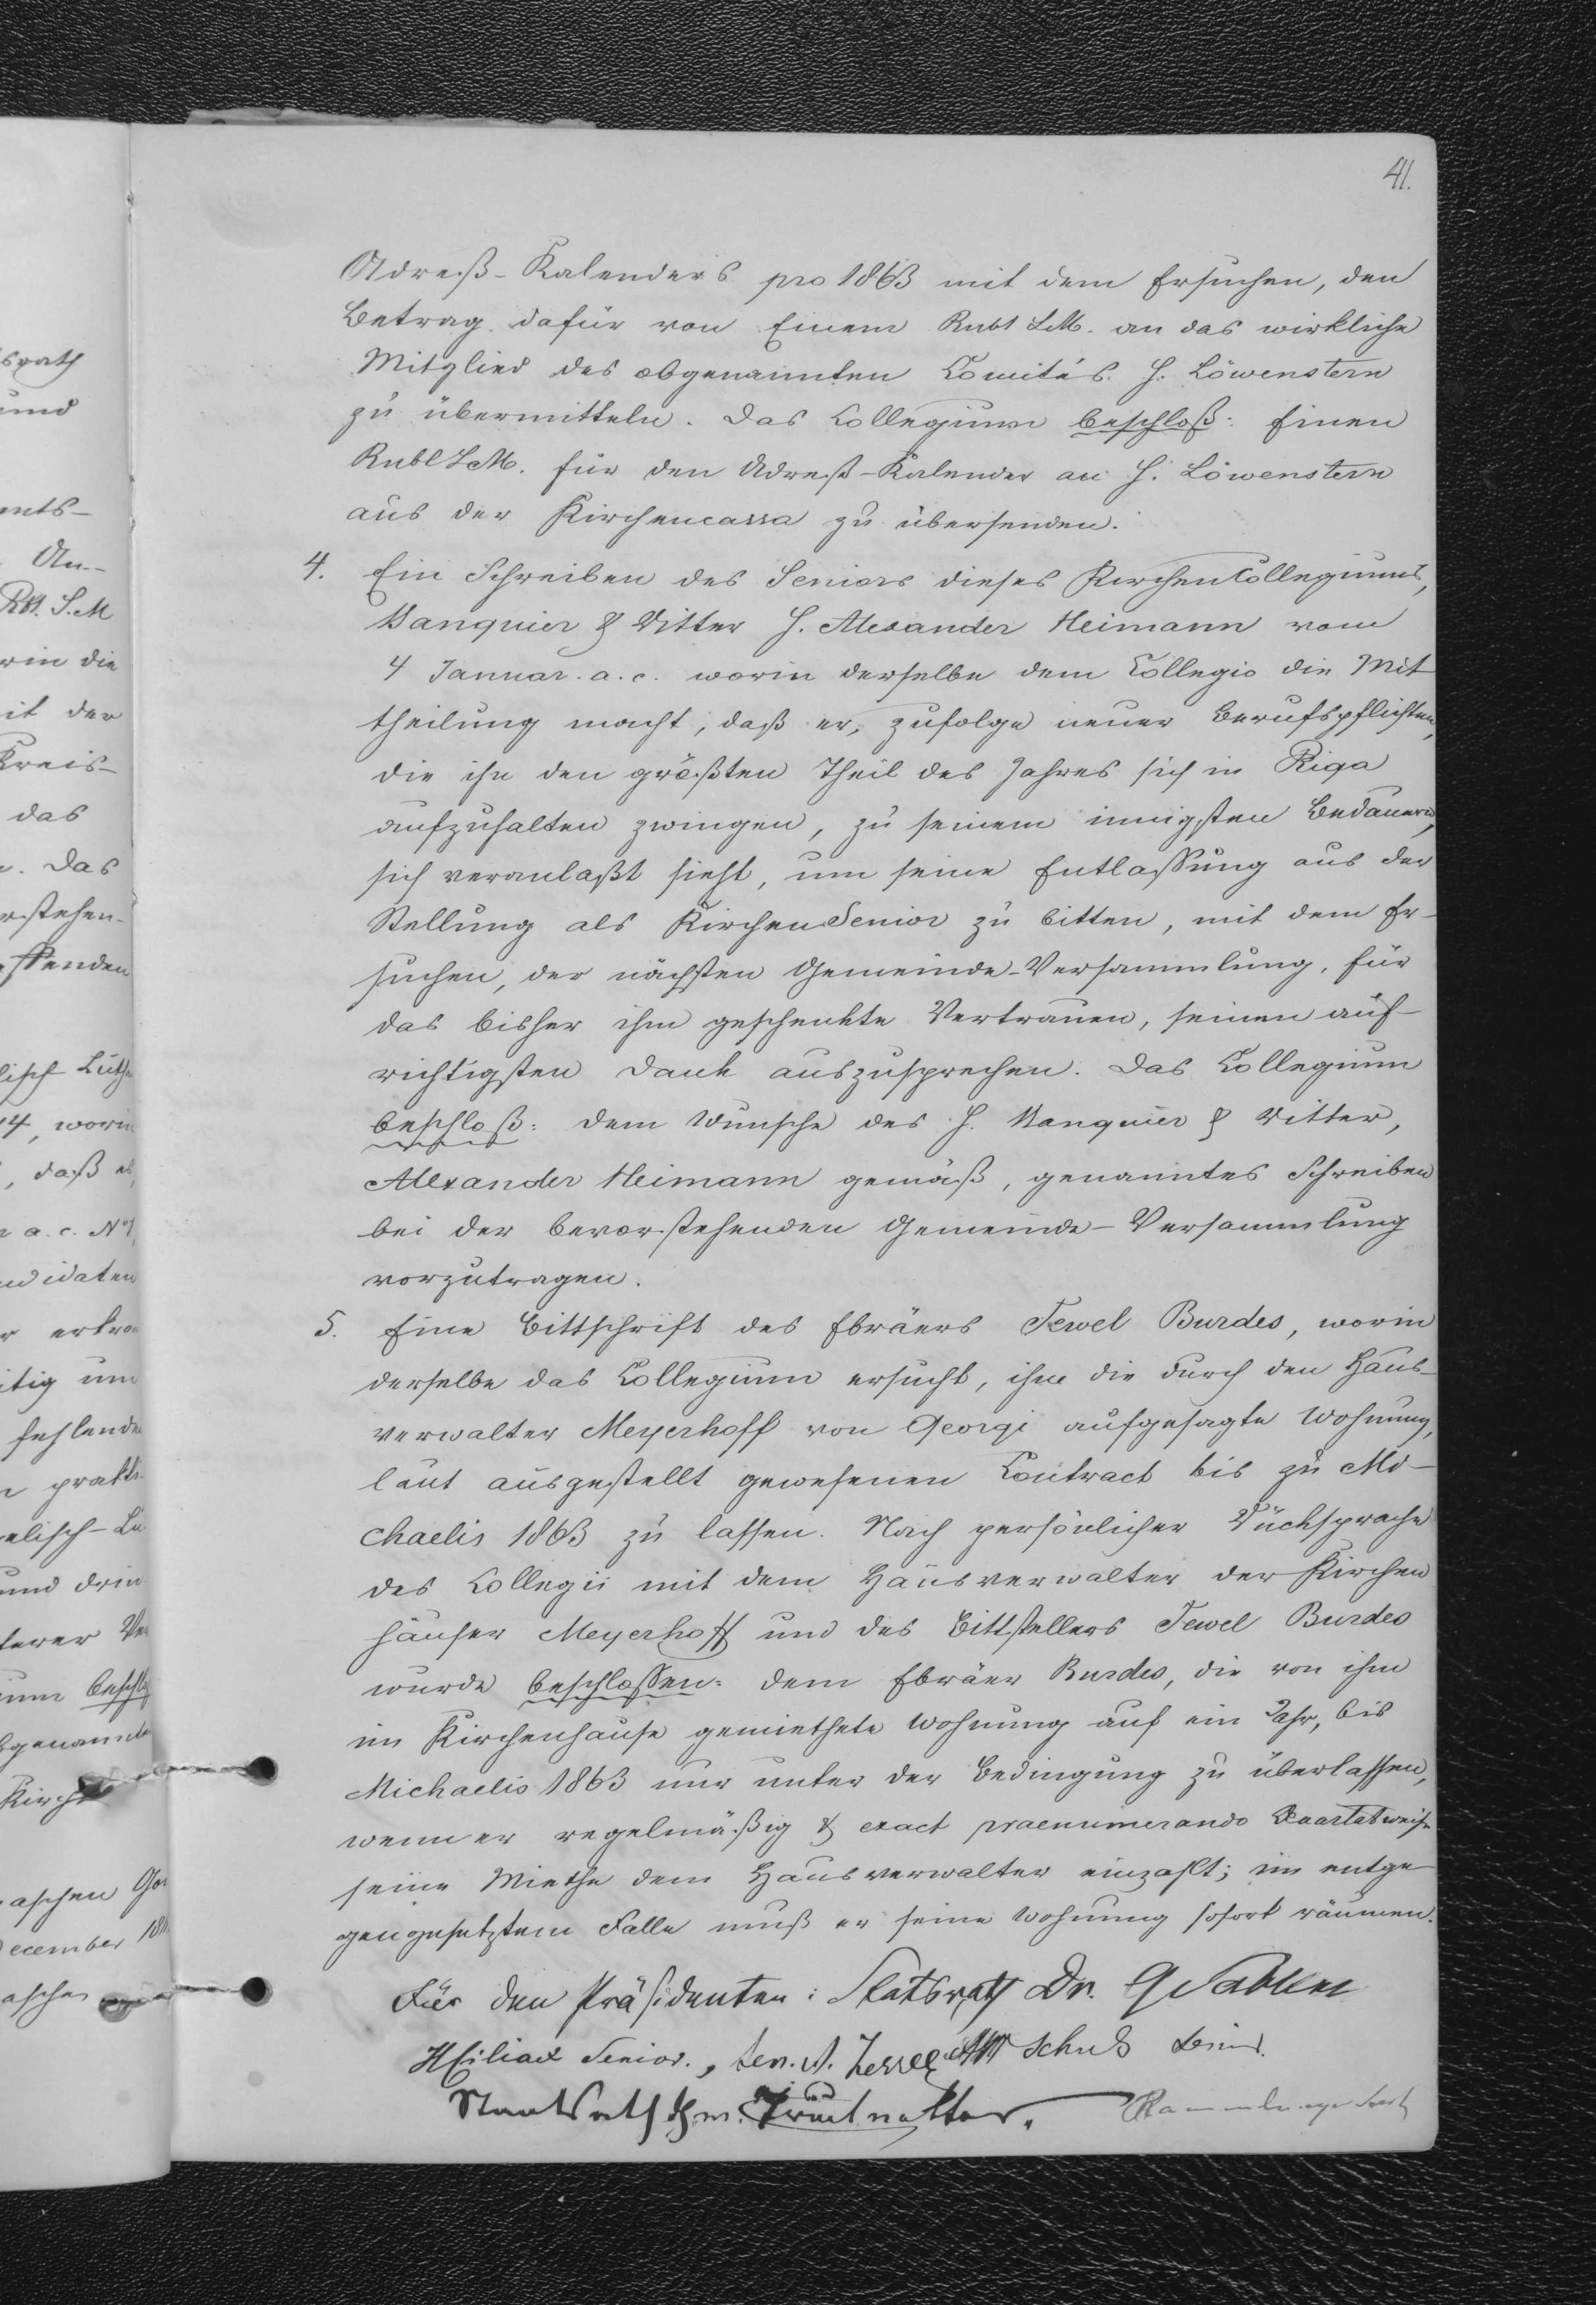 41.
Adreß-Kalenders pro 1863 mit dem Ersuchen, den
Betrag dafür von Einem Rubl S.M. an das wirkliche
Mitglied des obgenannten Comités H. Löwenstern
zu übermitteln. Das Collegium beschloß: Einen
Rubl S.M. für den Adreß-Kalender an H. Löwenstern
aus der Kirchencassa zu übersenden.
4. Ein Schreiben des Seniors dieses Kirchen Collegiums,
Banquier & Ritter H. Alexander Heimann vom
4 Januar. a. c. worin derselbe dem Collegio die Mit
theilung macht, daß er, zufolge neuer Berufspflichten,
die ihn den größten Theil des Jahres sich in Riga
aufzuhalten zwingen, zu seinem innigsten Bedauern,
sich veranlaßt sieht, um seine Entlassung aus der
Stellung als Kirchen Senior zu bitten, mit dem Er-
suchen, der nächsten Gemeinde-Versammlung, für
das bisher ihm geschenkte Vertrauen, seinen auf-
richtigsten Dank auszusprechen. Das Collegium
beschloß: dem Wunsche des H. Banquier & Ritter,
Alexander Heimann gemäß, genanntes Schreiben
bei der bevorstehenden Gemeinde-Versammlung
vorzutragen.
5. Eine Bittschrift des Ebräers Tewel Burdes, worin
derselbe das Collegium ersucht, ihm die durch den Haus-
verwalter Meyerhoff von Georgi aufgesagte Wohnung,
laut ausgestellt gewesenen Contract bis zu Mi-
chaelis 1863 zu lassen. Nach persönlicher Rücksprache
des Collegii mit dem Hausverwalter der Kirchen
häuser Meyerhoff und des Bittstellers Tewel Burdes
wurde beschlossen: dem Ebräer Burdes, die von ihm
im Kirchenhause gemiethete Wohnung auf ein Jahr, bis
Michaelis 1863 nur unter der Bedingung zu überlassen,
wenn er regelmäßig & exact praenumerando Quartalweise
seine Miethe dem Hausverwalter einzahlt; im entge-
gengesetztem Falle muß er seine Wohnung sofort räumen.
Für den Präsidenten: Statsrath Dr.
Senior. Schulz
Staatsrath